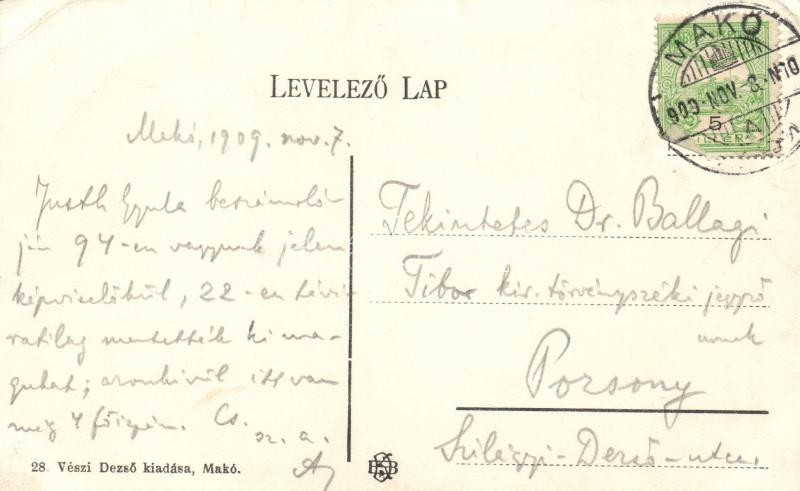 LEVELEZŐ LAP
MAKÓ
909 · NOV. 8 · N10
5
A
Makó, 1909. nov. 7.
Justh Gyula beszámoló-
ján 94-en vagyunk jelen
képviselőkűl, 22-en távi-
ratilag mentették ki ma-
gukat; azonkívül itt van
még 4 főispán. Cs.
sz. a.
Tekintetes Dr. Ballagi
Tibor kir. törvényszéki jegyző
urnak
Pozsony
Szilágyi-Dezső-utca
28. Vészi Dezső kiadása, Makó.